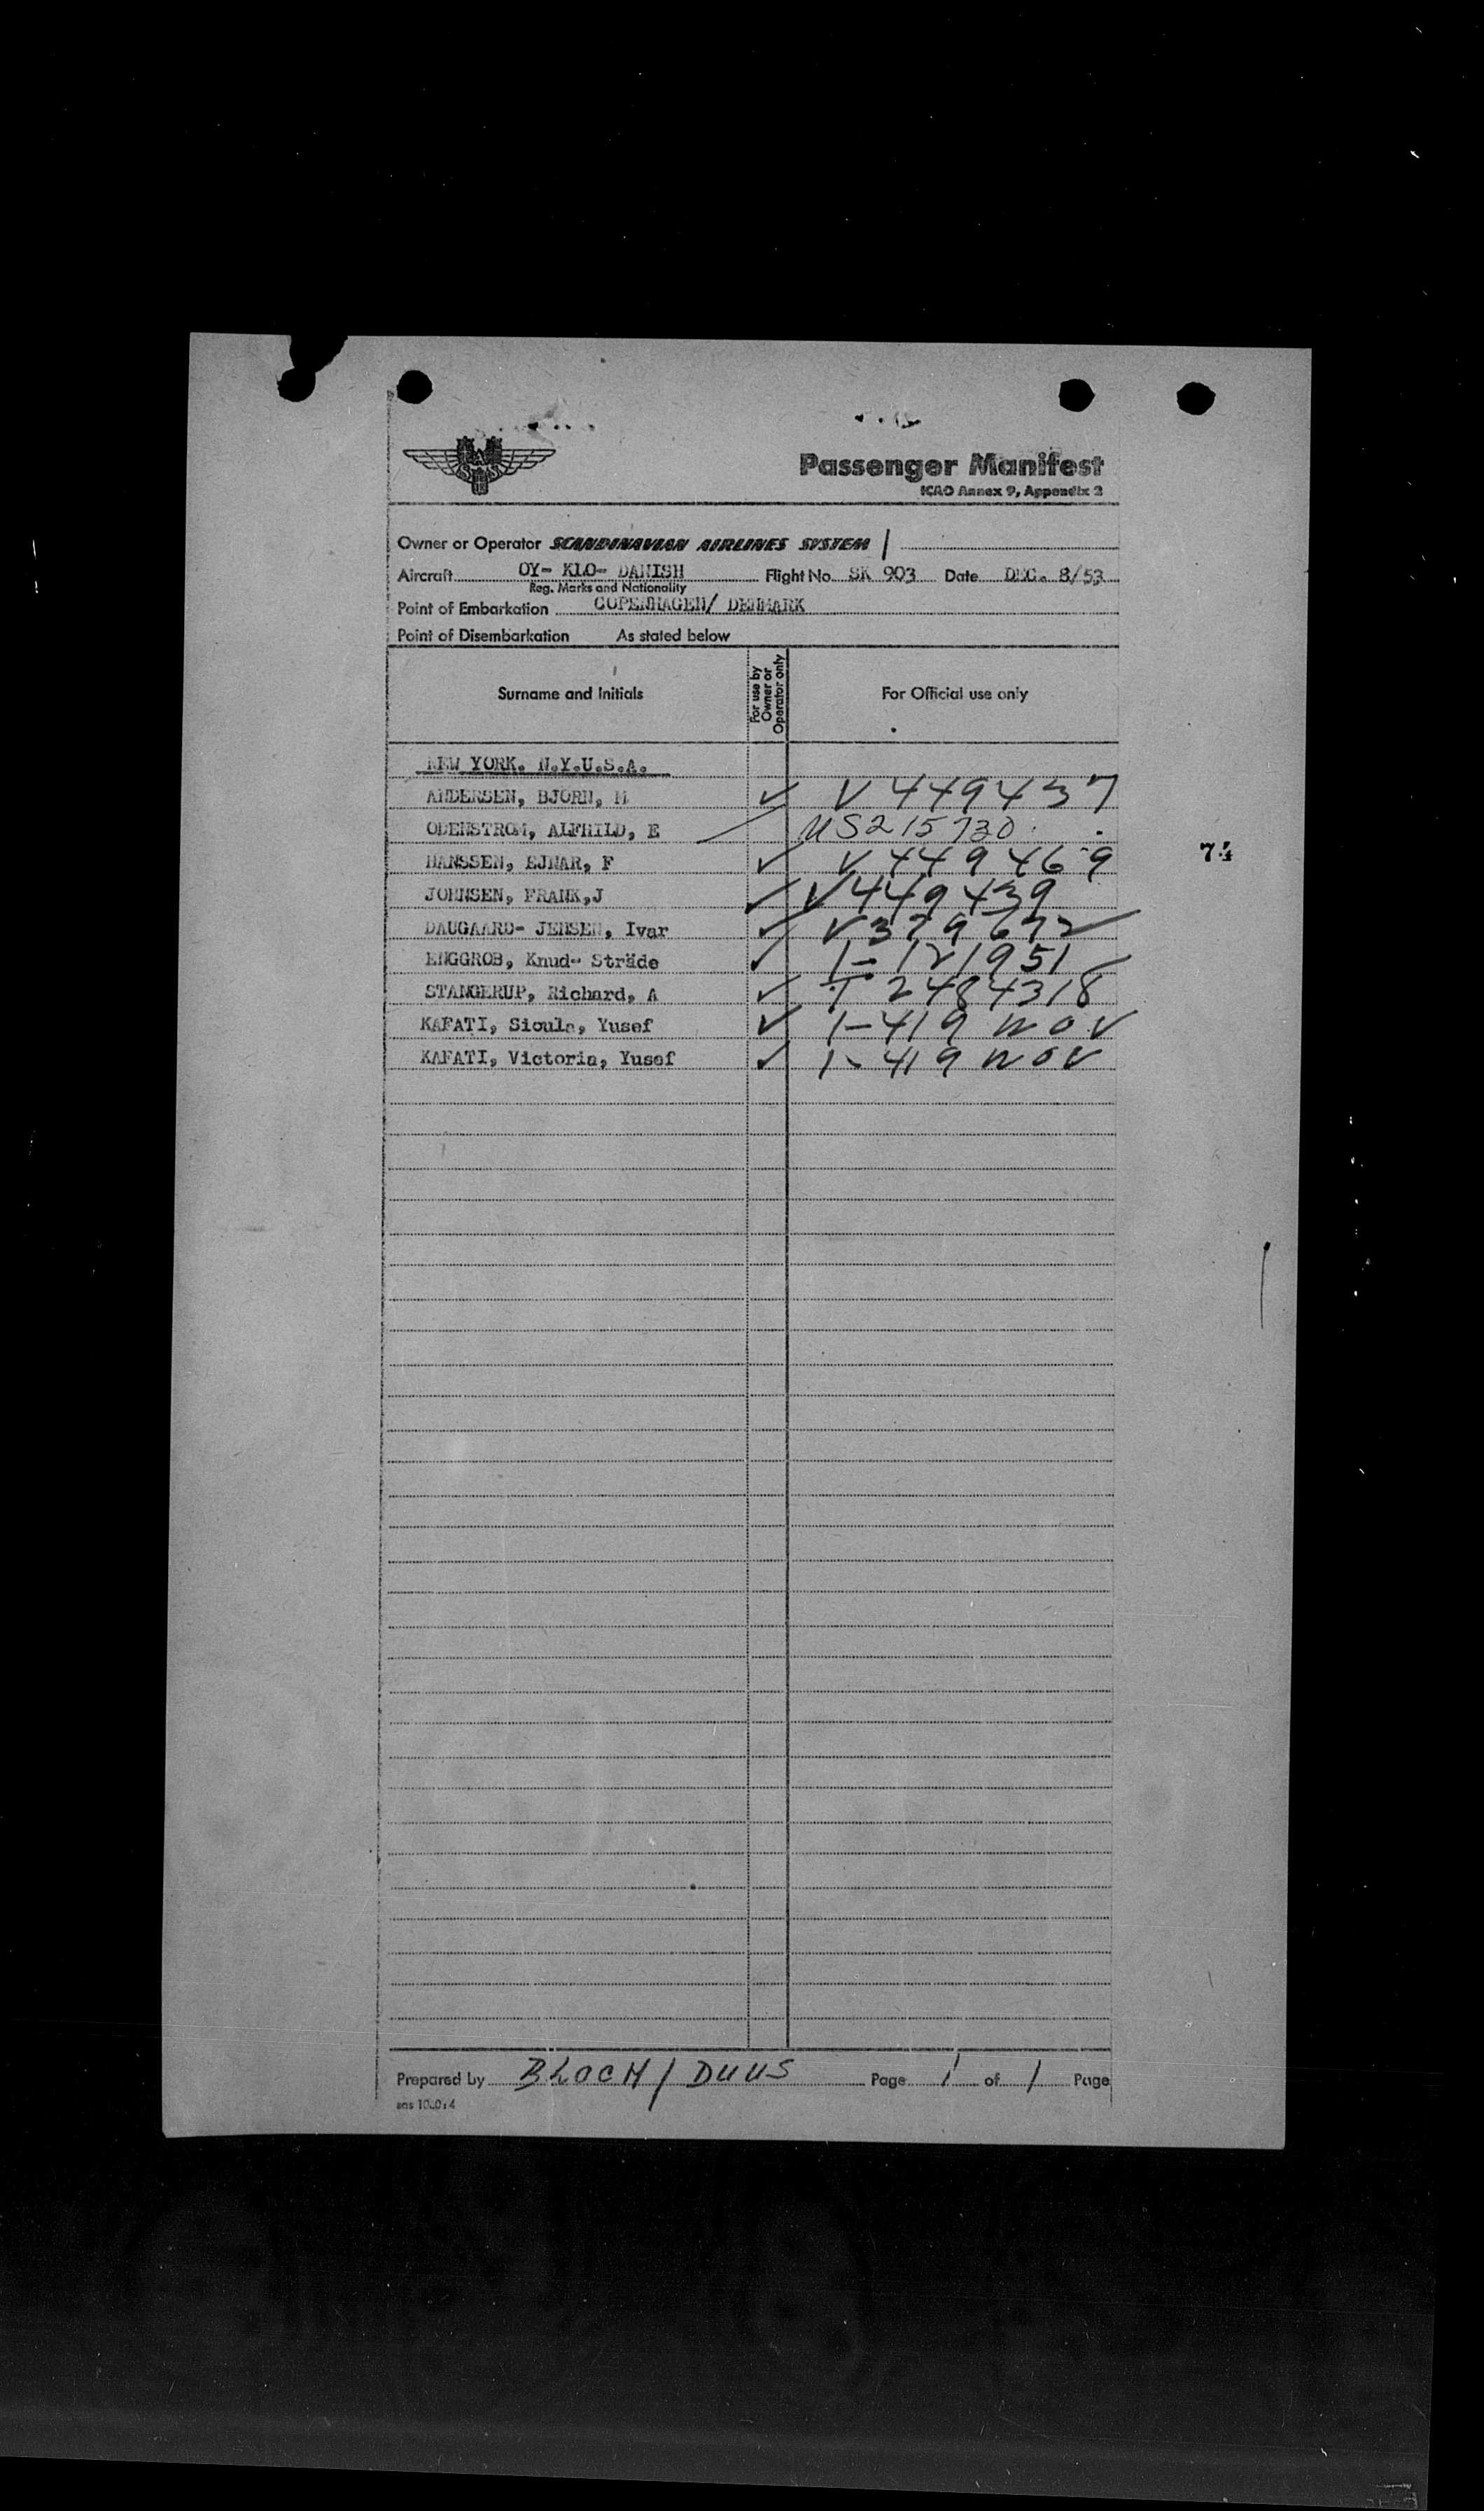 SAS
Passenger Manifest
ICAO Annex 9, Appendix 2
Owner or Operator SCANDINAVIAN AIRLINES SYSTEM
Aircraft OY- KLO- DANISH Flight No. SK 903 Date DEC. 8/53
Reg. Marks and Nationality
Point of Embarkation COPENHAGEN/ DENMARK
Point of Disembarkation As stated below
Surname and Initials For use by Owner or Operator only For Official use only
NEW YORK. N.Y.U.S.A.
ANDERSEN, BJORN, M ✓ V449437
ODENSTROM, ALFHILD, E US215730
HANSSEN, EJNAR, F ✓ V449469
JOHNSEN, FRANK,J ✓ V449439
DAUGAARD- JENSEN, Ivar ✓ V379672
ENGGROB, Knud- Sträde ✓ 1-121951
STANGERUP, Richard, A ✓ T 2484318
KAFATI, Sioula, Yusef ✓ 1-419 NOV
KAFATI, Victoria, Yusef ✓ 1-419 NOV
Prepared by BLOCH/DUUS Page 1 of 1 Page